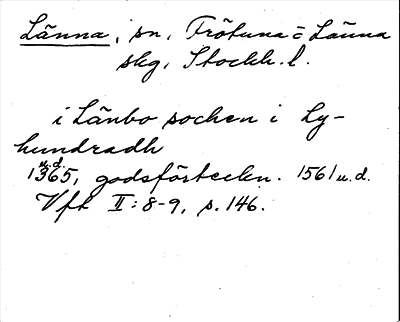 Länna, sn, Frötuna = Länna
skg, Stockh. l.
i Länbo sochen i Ly-
hundradh
u.d.
1365, godsförteckn. 1561 u.d.
Vft II: 8-9, s. 146.